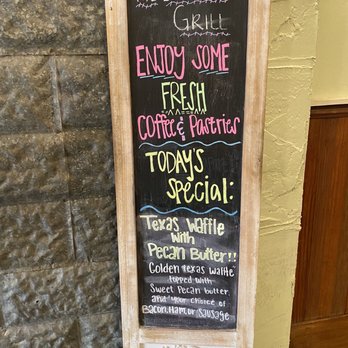 GRILL
ENJOY SOME
FRESH
COFFEE & PASTRIES
TODAY'S
SPECIAL:
TEXAS WAFFLE
WITH
PECAN BUTTER!!
Golden Texas Waffle
topped with
Sweet Pecan butter
and your choice of
Bacon, Ham or Sausage